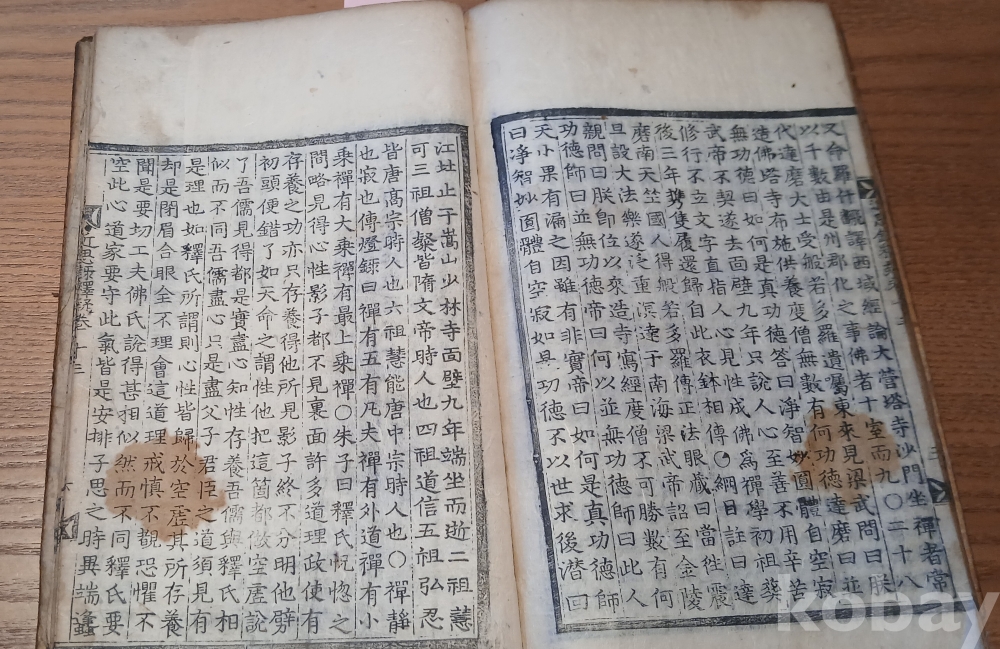 又命羅什飜譯西域經論大營塔寺沙門坐禪者常
以千數由是州郡化之事佛者十室而九〇二十八
代達磨大士受般若多羅遺囑東來見梁武問曰朕
造佛塔寺布施供養度僧無數有何功德達磨曰並
無功德曰如何是真功德答曰淨智妙圓體自空寂
武帝不契遂去面壁九年只說人心至善不用辛苦
修行不立文字直指人心見性成佛爲禪學初祖葬
後三年携隻履還歸自此衣鉢相傳〇綱目註曰達
磨南天竺國人得般若多羅傳正法眼藏曰當徃震
旦設大法樂遂泛重溟達于南海梁武帝詔至金陵
親問曰朕卽位以來造寺寫經度僧不可勝數有何
功德師曰並無功德帝曰何以並無功德師曰此人
天小果有漏之因雖有非實帝曰如何是真功德師
曰淨智妙圓體自空寂如具功德不以世求後潛回
江址止于嵩山少林寺面壁九年端坐而逝二祖慧
可三祖僧粲皆隋文帝時人也四祖道信五祖弘忍
皆唐高宗時人也六祖慧能唐中宗時人也〇禪靜
也寂也傳燈錄曰禪有五有凡夫禪有外道禪有小
乘禪有大乘禪有最上乘禪〇朱子曰釋氏怳惚之
間略見得心性影子都不見裏面許多道理政使有
存養之功亦只存養得他所見影子終不分明他劈
初頭便錯了如天命之謂性他把這箇都做空虛說
了吾儒見得都是實盡心知性存養吾儒與釋氏相
似而不同吾儒盡心只是盡父子君臣之道須見有
是理也如釋氏所謂則心性皆歸於空虛其所存養
却是閉眉合眼全不理會這道理戒慎不覩恐懼不
聞是要切工夫佛氏說得甚相似然而不同釋氏要
空此心道家要守此氣皆是安排子思之時異端蠭
kobay